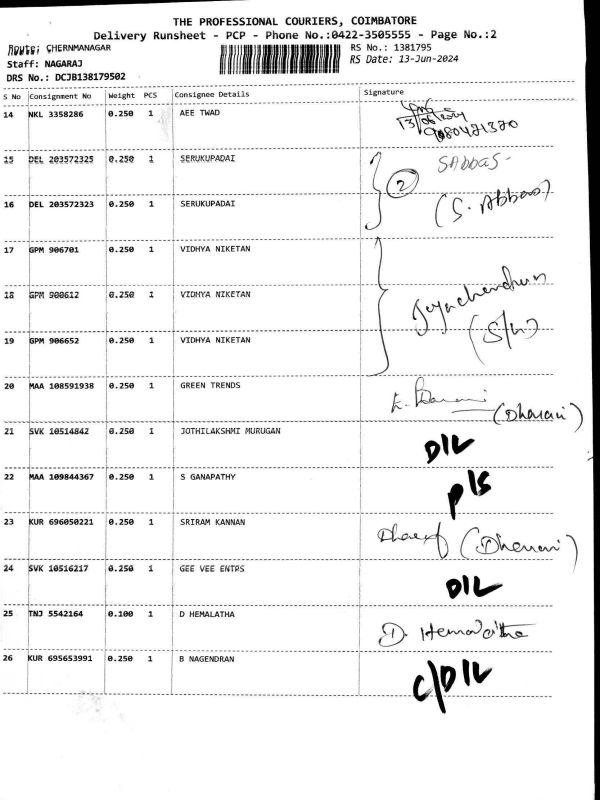 THE PROFESSIONAL COURIERS, COIMBATORE
Delivery Runsheet - PCP - Phone No.:0422-3505555 - Page No.:2
Route: CHERNMANAGAR
RS No.: 1381795
Staff: NAGARAJ
RS Date: 13-Jun-2024
DRS No.: DCJB138179502
S No Consignment No Weight PCS Consignee Details Signature
14 NKL 3358286 0.250 1 AEE TWAD
15 DEL 203572325 0.250 1 SERUKUPADAI SAbbas-
2
16 DEL 203572323 0.250 1 SERUKUPADAI (S. Abbas)
17 GPM 906701 0.250 1 VIDHYA NIKETAN
18 GPM 900612 0.250 1 VIDHYA NIKETAN Jayachandran
19 GPM 906652 0.250 1 VIDHYA NIKETAN
20 MAA 108591938 0.250 1 GREEN TRENDS (Dharani)
21 SVK 10514842 0.250 1 JOTHILAKSHMI MURUGAN D/L
22 MAA 109844367 0.250 1 S GANAPATHY P/S
23 KUR 696050221 0.250 1 SRIRAM KANNAN (Dharani)
24 SVK 10516217 0.250 1 GEE VEE ENTPS D/L
25 TNJ 5542164 0.100 1 D HEMALATHA D. Hemalatha
26 KUR 695653991 0.250 1 B NAGENDRAN C/D/L